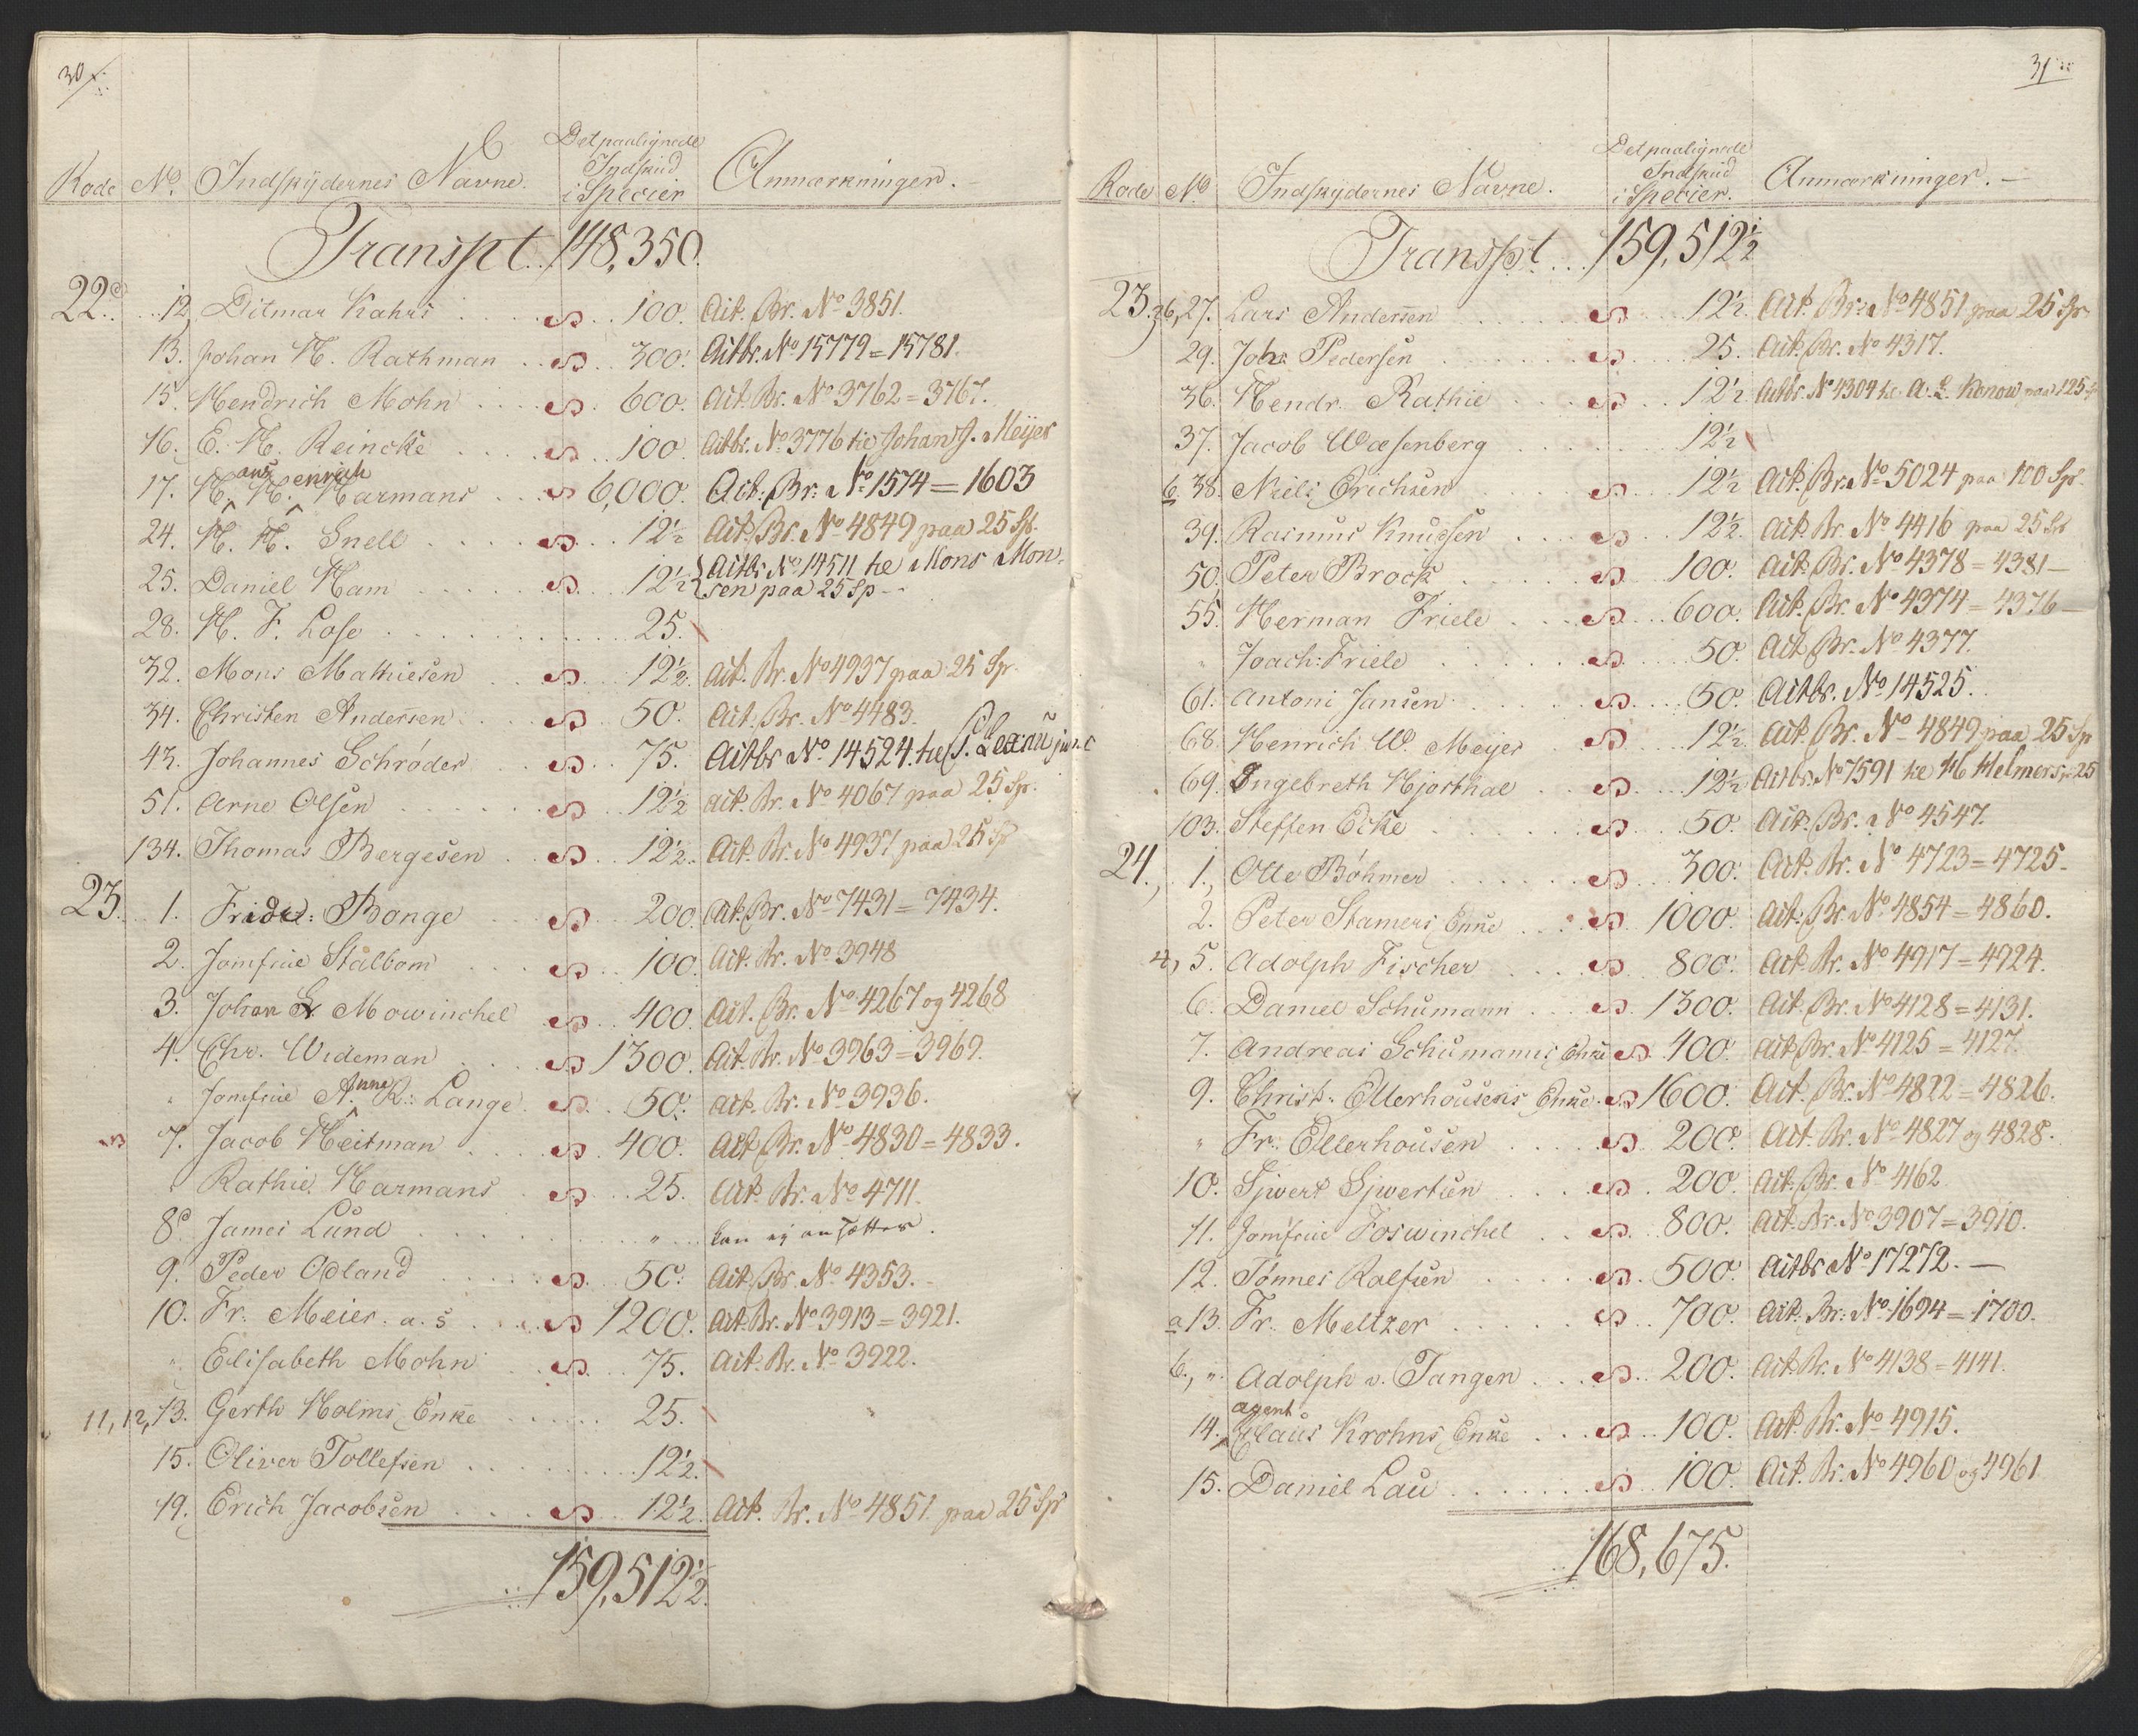 30
Rode No. Indskydernes Navne. Det paalignede Indskud i Specier Anmærkninger.
Transpt. 148,350.
22. 12 Ditmar Kahrs 100. Act. Br. No 3851.
13. Johan H. Rathman 300. Actbr. No 15779=15781.
15. Hendrich Mohn 600. Act. Br. No 3762=3767.
16. E. H. Reincke 100. Actbr. No 3776 til Johan J. Meijer
17. Hans Henrich Harmans 6,000. Act. Br. No 1574=1603
24. H. H. Snell 12½ Act. Br. No 4849 paa 25 Sp.
25. Daniel Ham 12½ Actbr No 14511 til Mons Mon-
sen paa 25 Sp
28. H. F. Lose 25.
32. Mons Mathiesen 12½. Act. Br. No 4937 paa 25 Sp.
34. Christen Andersen 50. Act. Br. No 4483.
43. Johannes Schrøder 75. Actbr No 14524. til
51. Arne Olsen 12½ Act. Br. No 4067 paa 25 Sp.
134. Thomas Bergesen 12½. Act. Br. No 4937 paa 25 Sp
23. 1. Fridr: Bonge 200. Act. Br. No 7431=7434.
2. Jomfrue Stalbom 100. Act. Br. No 3948
3. Johan Mowinchel 400. Act. Br. No 4267 og 4268
4. Chr. Wideman 1300. Act. Br. No 3963=3969.
" Jomfrue Anna R. Lange 50. Act. Br. No 3936.
7. Jacob Heitman 400. Act. Br. No 4830=4833.
" Rathie Harmans 25. Act. Br. No 4711.
8. James Lund " kan ej ansættes.
9. Peder Odland 50. Act. Br. No 4353.
10. Fr. Meier. a. s 1200. Act. Br. No 3913=3921.
" Elisabeth Mohn 75. Act. Br. No 3922.
11, 12, 13. Gerth Holms Enke 25. "
15. Oliver Tollefsen 12½.
19. Erich Jacobsen 12½. Act. Br. No 4851 paa 25 Sp
159,512½.
31
Rode No Indskydernes Navne. Det paalignede Indskud i Specier. Anmærkninger.
Transpt. 159,512½
23. 26, 27. Lars Andersen 12½. Act. Br. No 4851 paa 25 Sp
29. Johs Pedersen 25. Act. Br. No 4317.
36. Hendr. Rathie 12½ Actbr. No 4304 til A. L. Konow paa 125
37. Jacob Wæsenberg 12½
6. 38. Niels Erichsen 12½ Act. Br. No 5024 paa 100 Sp.
39. Rasmus Knudsen 12½. Act. Br. No 4416 paa 25 Sp
50. Peter Brock 100. Act. Br. No 4378=4381
55. Herman Friele 600. Act. Br. No 4374=4376
" Joach: Friele 50. Act. Br. No 4377.
61. Antoni Jansen 50. Actbr. No 14525.
68. Henrich W. Meyer 12½. Act. Br. No 4849 paa 25 Sp
69. Ingebreth Hjorthal 12½ Actbr. No 7591 til H Helmers 25
103. Steffen Ecke 50. Act. Br. No 4547.
24. 1. Otte Bøhmer 300. Act. Br. No 4723=4725.
2. Peter Stamers Enke 1000. Act. Br. No 4854=4860.
4, 5. Adolph Fischer 800. Act. Br. No 4917=4924.
6. Daniel Schumann 1300. Act. Br. No 4128=4131.
7. Andreas Schumanns Enke 400. Act. Br. No 4125=4127.
9. Christ. Ellerhousens Enke 1600. Act. Br. No 4822=4826.
" Fr. Ellerhousen 200. Act. Br. No 4827 og 4828.
10. Sjwert Sjwertsen 200. Act. Br. No 4162
11. Jomfrue Foswinchel 800. Act. Br. No 3907=3910.
12. Tønnes Rolfsen 500. Actbr No 17272.
a 13. Fr. Meltzer 700. Act. Br. No 1694=1700.
6., " Adolph v. Tangen 200. Act. Br. No 4138=4141.
14. agent Claus Krohns Enke 100. Act. Br. No 4915.
15. Daniel Lau 100. Act. Br. No 4960 og 4961
168,675.